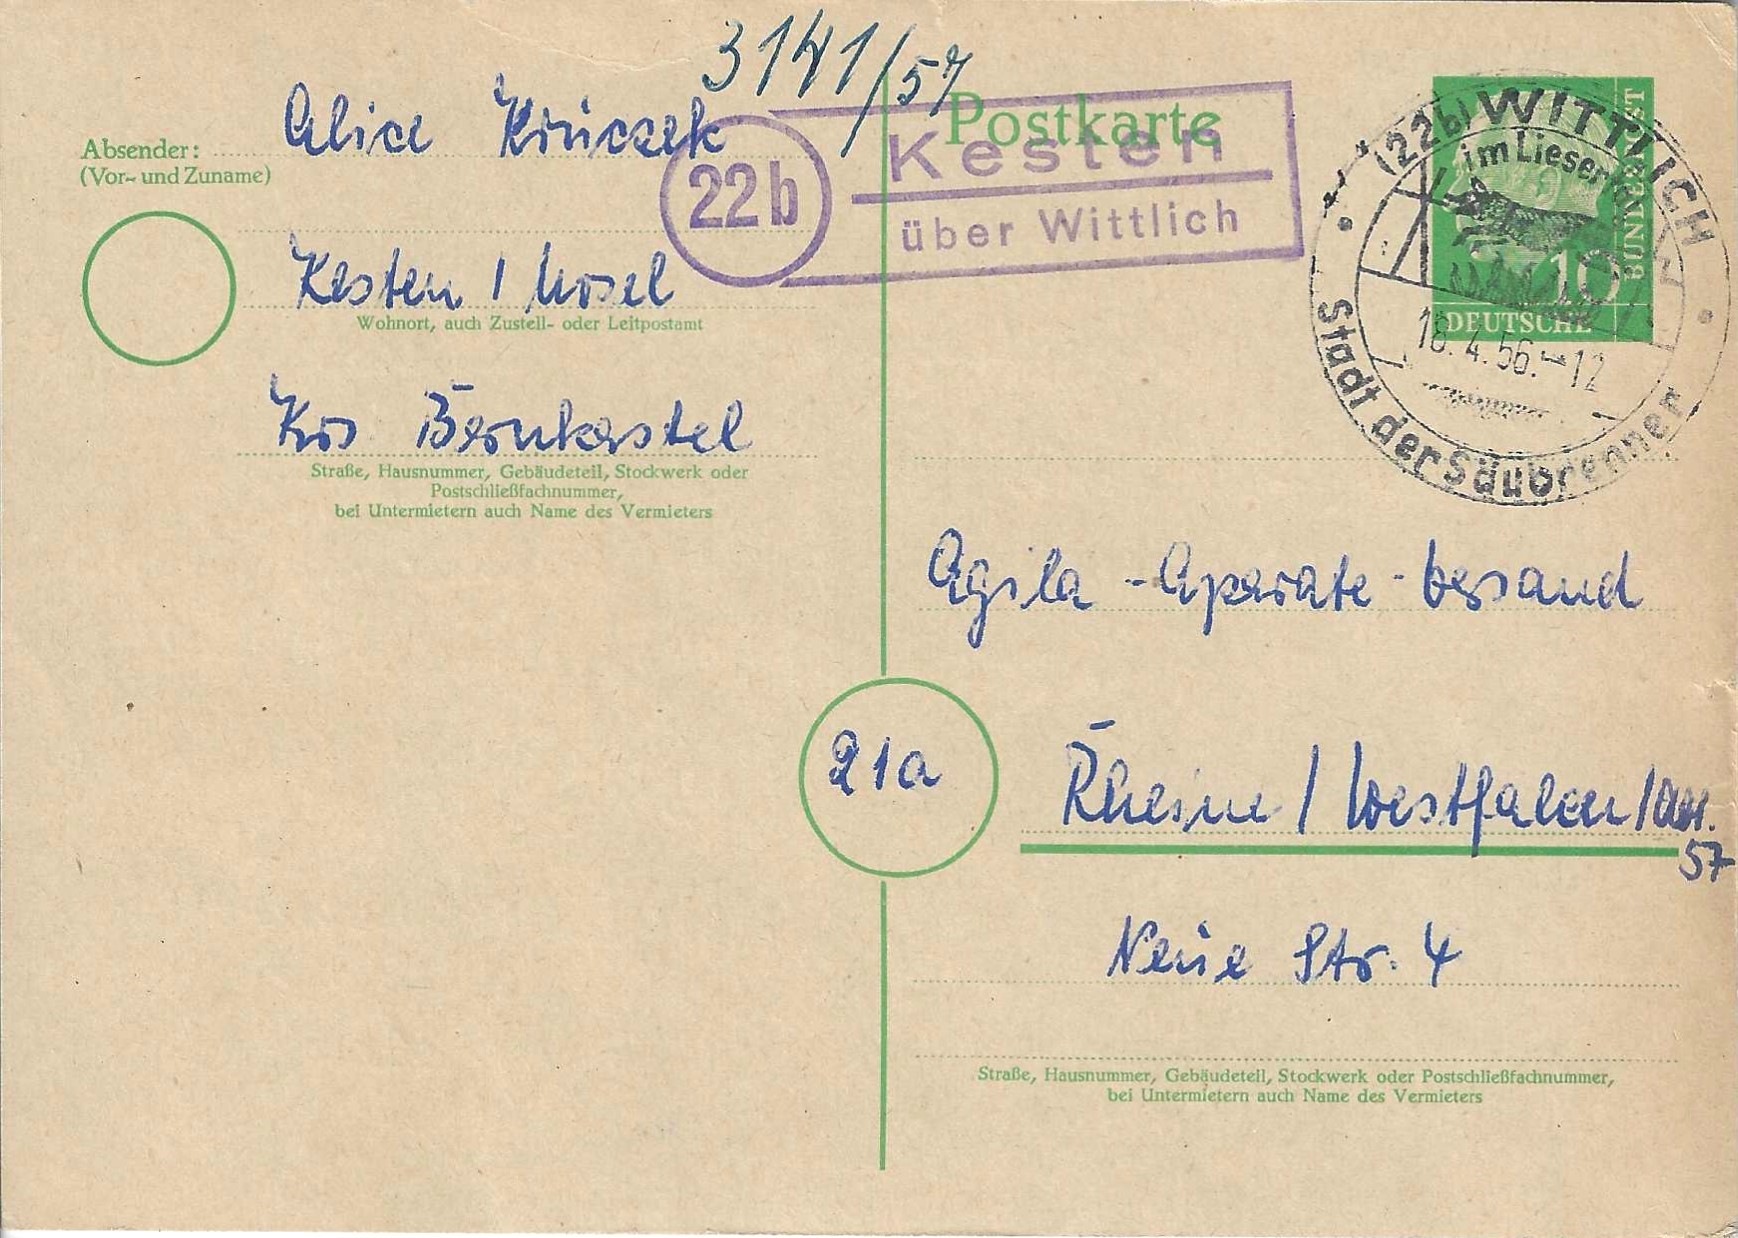 3141/57
Absender:
(Vor- und Zuname)
Alice Krüczek
Kesten / Mosel
Wohnort, auch Zustell- oder Leitpostamt
Krs Bernkastel
Straße, Hausnummer, Gebäudeteil, Stockwerk oder
Postschließfachnummer,
bei Untermietern auch Name des Vermieters
22b
Kesten
über Wittlich
Postkarte
(22b) WITTLICH
im Liesertal
18.4.56.-12
Stadt der Säubrenner
10
DEUTSCHE
BUNDESPOST
Agila - Aparate - Versand
21a
Rheine / Westfalen /
57
Neue Str. 4
Straße, Hausnummer, Gebäudeteil, Stockwerk oder Postschließfachnummer,
bei Untermietern auch Name des Vermieters